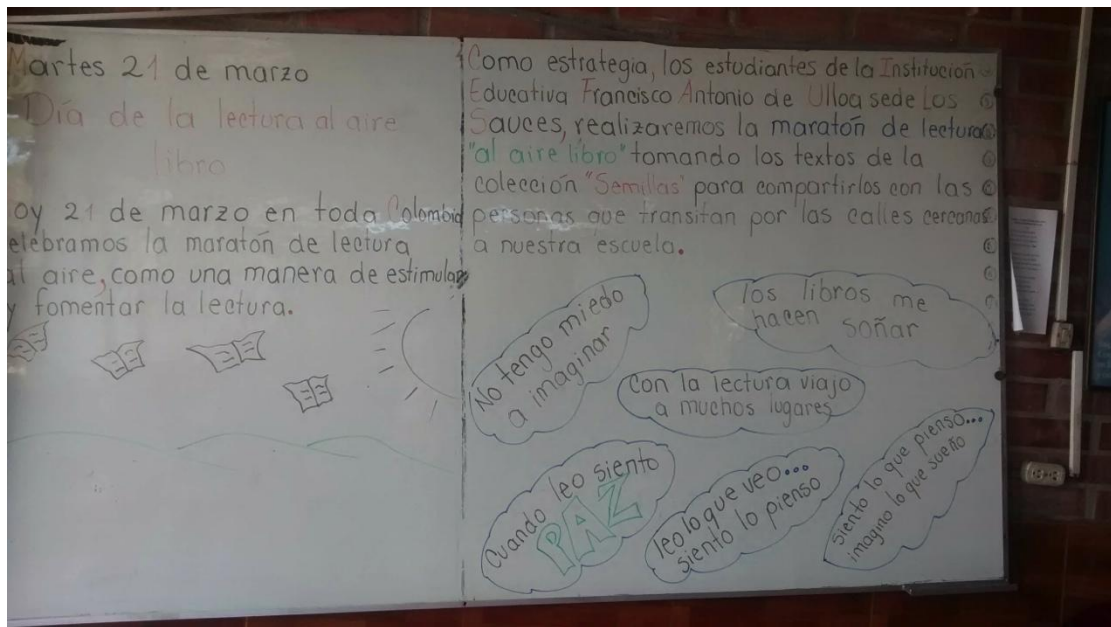 Martes 21 de marzo
Día de la lectura al aire
libro
oy 21 de marzo en toda Colombia
elebramos la maratón de lectura
al aire, como una manera de estimular
y fomentar la lectura.
Como estrategia, los estudiantes de la Institución
Educativa Francisco Antonio de Ulloa sede Los
Sauces, realizaremos la maratón de lectura
"al aire libro" tomando los textos de la
colección "Semillas" para compartirlos con las
personas que transitan por las calles cercanas
a nuestra escuela.
No tengo miedo
a imaginar
los libros me
hacen soñar
Con la lectura viajo
a muchos lugares
Cuando leo siento
PAZ
leo lo que veo...
siento lo pienso
siento lo que pienso...
imagino lo que sueño